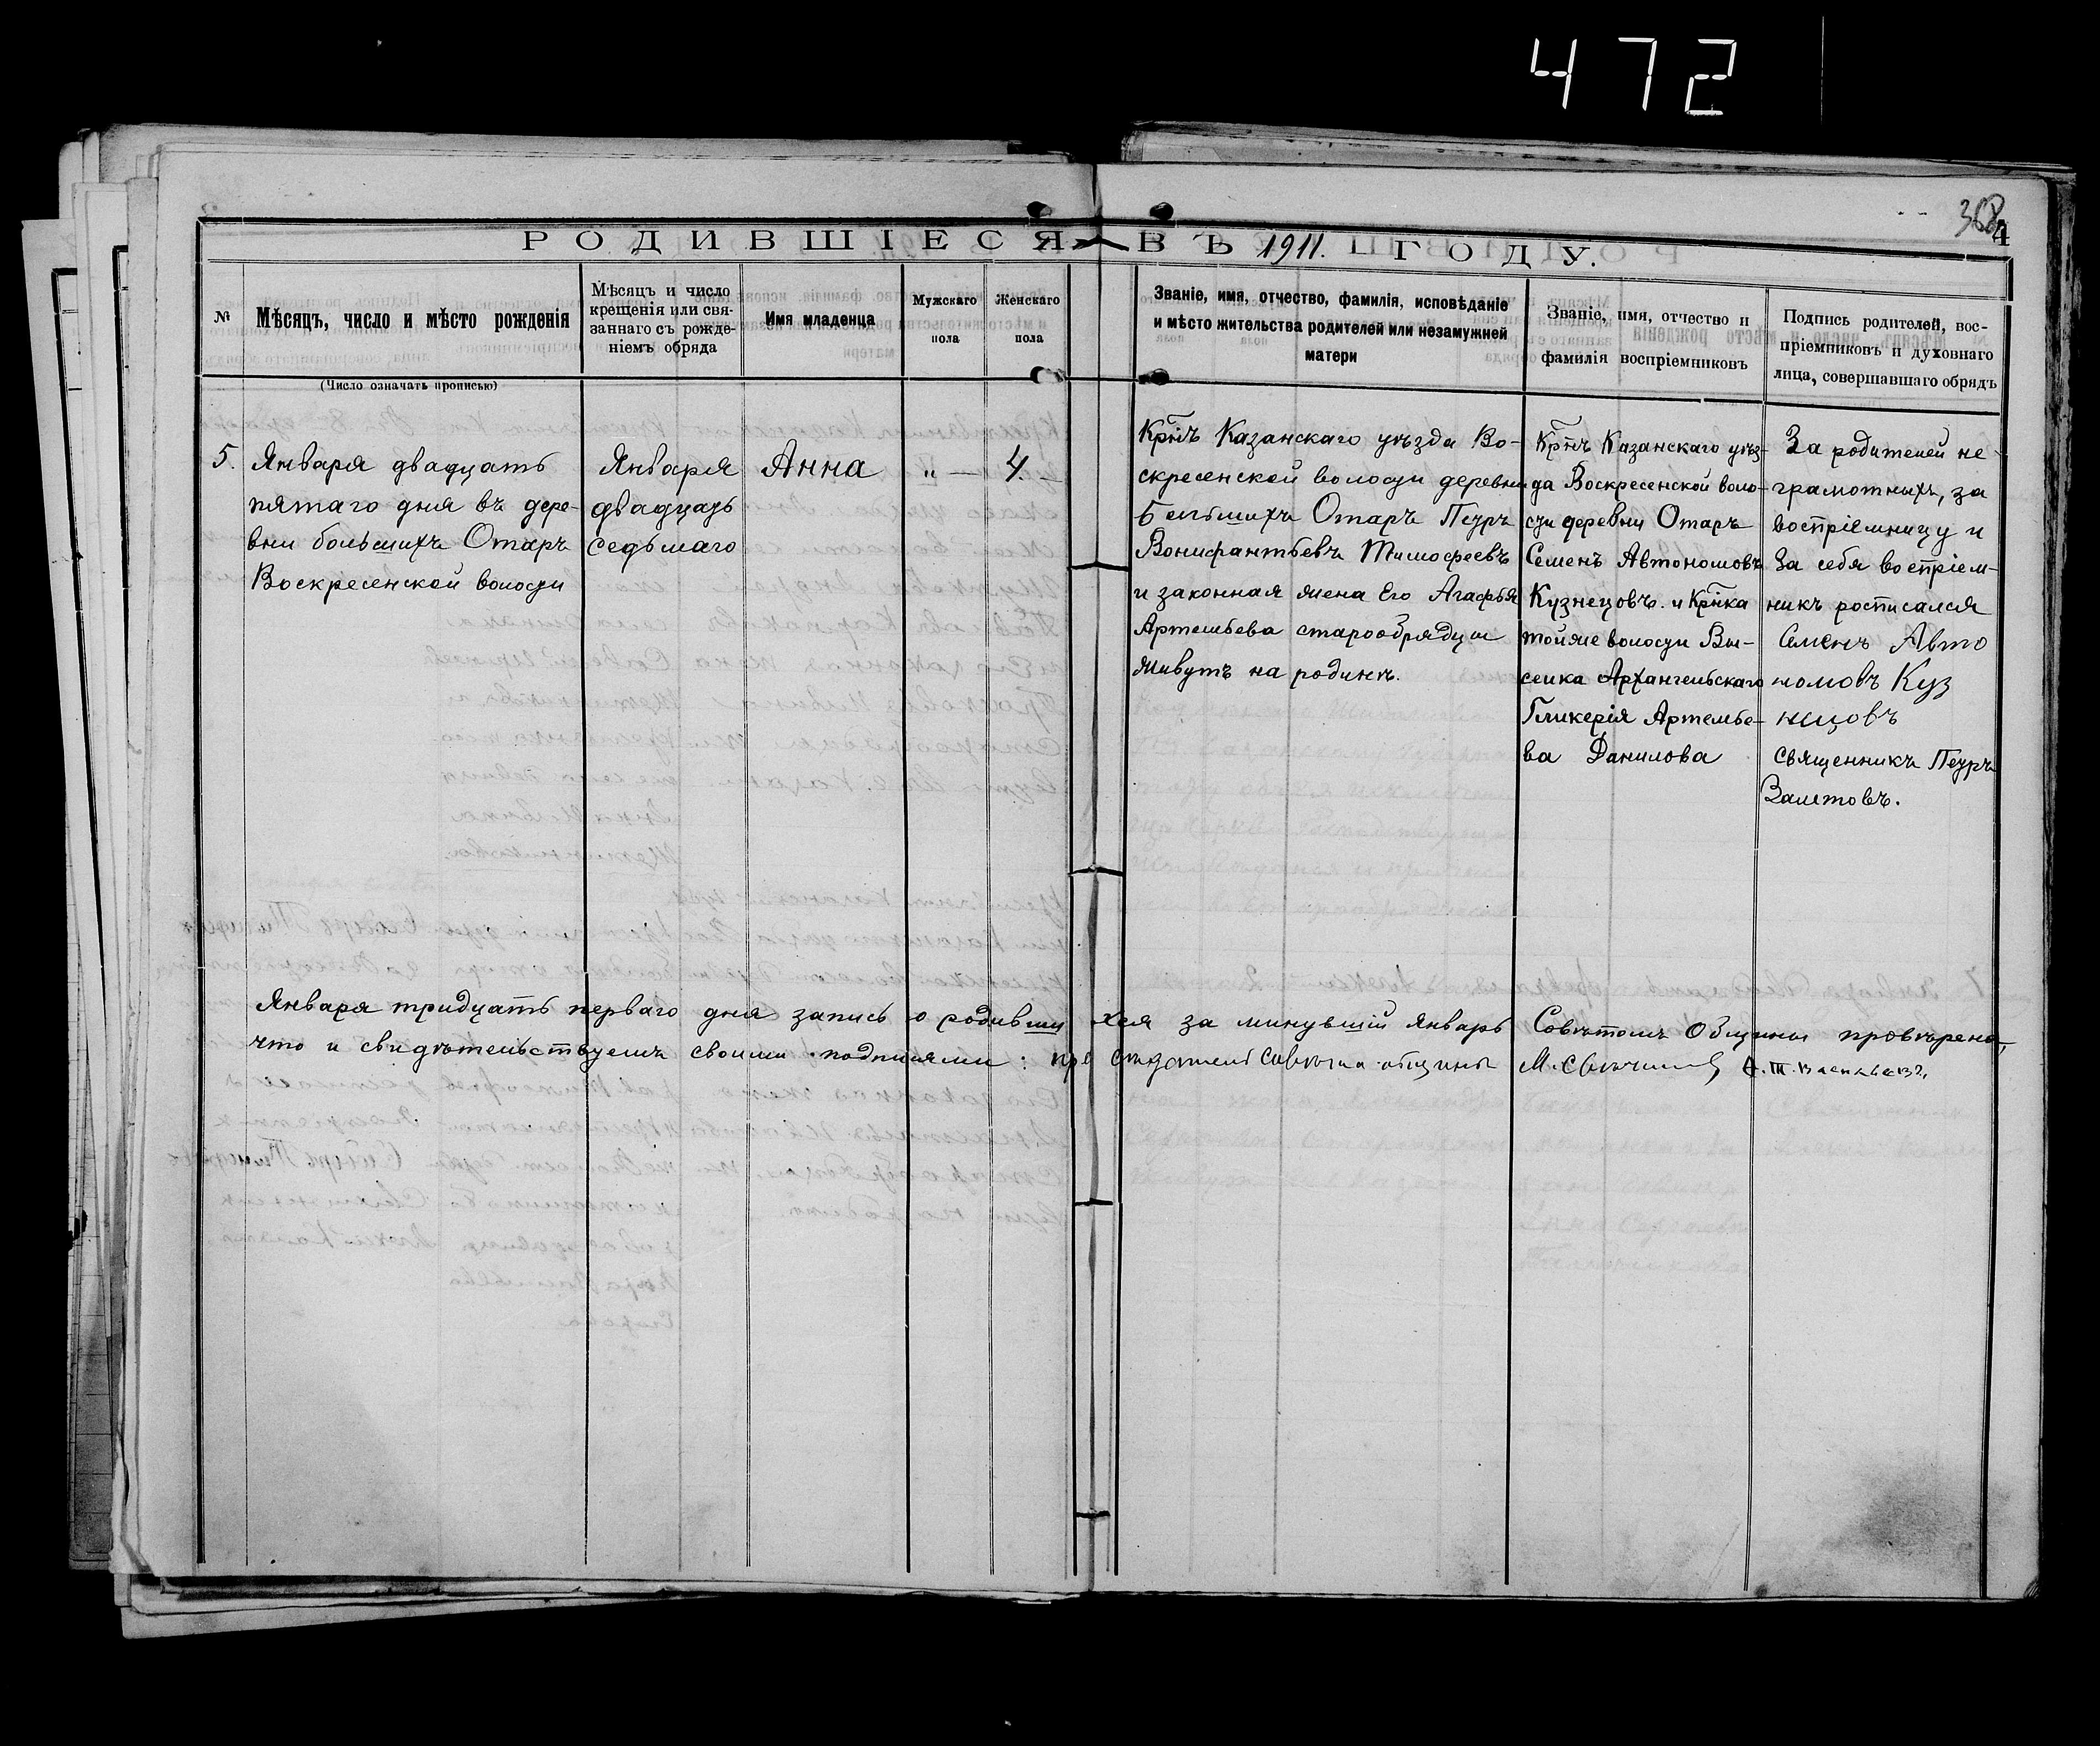 472
368
4
РОДИВШІЕСЯ ВЪ 1911. ГОДУ.
№
Мѣсяцъ, число и мѣсто рожденія
(Число означать прописью)
Мѣсяцъ и число
крещенія или свя-
заннаго съ рожде-
ніемъ обряда
Имя младенца
Мужскаго
пола
Женскаго
пола
Званіе, имя, отчество, фамилія, исповѣданіе
и мѣсто жительства родителей или незамужней
матери
Званіе, имя, отчество и
фамилія воспріемниковъ
Подпись родителей, вос-
пріемниковъ и духовнаго
лица, совершавшаго обрядъ
5.
Января двадцать
пятаго дня въ дере-
вни большихъ Отаръ
Воскресенской волости
Января
двадцать
седьмаго
Анна
" — 4. —
Крнъ Казанскаго уѣзда Во-
скресенской волости деревни
Большихъ Отаръ Петръ
Вонифантьевъ Тимофеевъ
и законная жена Его Агафья
Артемьева старообрядцы
живутъ на родинѣ.
Крнъ Казанскаго уѣз-
да Воскресенской воло-
сти деревни Отаръ
Семенъ Автономовъ
Кузнецовъ. и Крнка
тойже волости Вы-
селка Архангельскаго
Гликерія Артемье-
ва Данилова
За родителей не-
грамотныхъ, за
воспріемницу и
За себя воспріем-
никъ росписался
Семенъ Авто
номовъ Куз
нецовъ
священникъ Петръ
Залетовъ.
Января тридцать перваго дня запись о родившихся за минувшій январь Совѣтомъ Общины провѣрена,
что и свидѣтельствуемъ своими подписями: председатель Совѣта общины М.